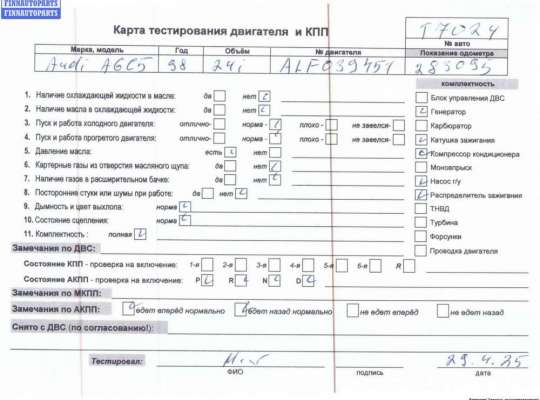 FINNAUTOPARTS
FINNAUTOPARTS
Карта тестирования двигателя и КПП
T7024
№ авто
Марка, модель Год Объём № двигателя Показание одометра
Audi A6C5 98 2,4i ALF039451 283093
комплектность
1. Наличие охлаждающей жидкости в масле: да нет
2. Наличие масла в охлаждающей жидкости: да нет
3. Пуск и работа холодного двигателя: отлично- норма - плохо - не завелся-
4. Пуск и работа прогретого двигателя: отлично- норма - плохо - не завелся-
5. Давление масла: есть нет
6. Картерные газы из отверстия масляного щупа: да нет
7. Наличие газов в расширительном бачке: да нет
8. Посторонние стуки или шумы при работе: да нет
9. Дымность и цвет выхлопа: норма
10. Состояние сцепления: норма
11. Комплектность : полная
Блок управления ДВС
Генератор
Карбюратор
Катушка зажигания
Компрессор кондиционера
Моновпрыск
Насос г/у
Распределитель зажигания
ТНВД
Турбина
Форсунки
Проводка двигателя
Замечания по ДВС:
Состояние КПП - проверка на включение: 1-я 2-я 3-я 4-я 5-я 6-я R
Состояние АКПП - проверка на включение: P R N D
Замечания по МКПП:
Замечания по АКПП: едет вперёд нормально едет назад нормально не едет вперёд не едет назад
Снято с ДВС (по согласованию!):
Тестировал: 29.4.25
ФИО подпись дата